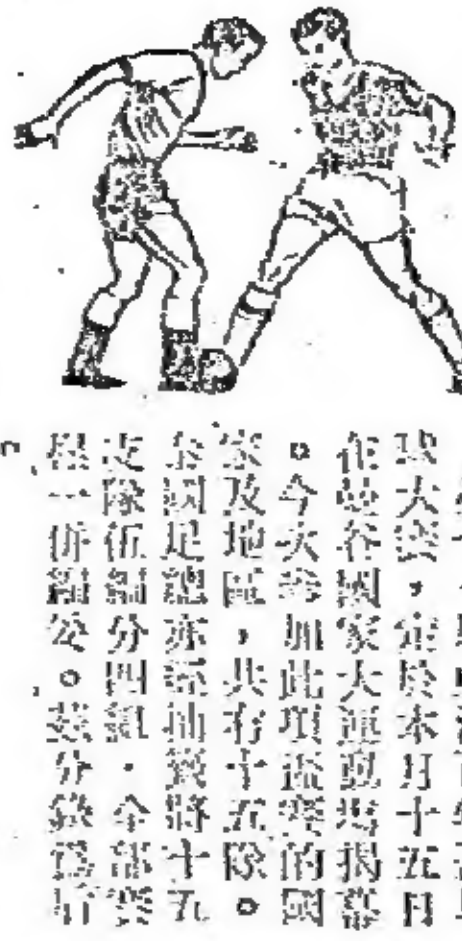 球大賽,定於本月十五日
在曼谷國家大運動場揭幕
。今次參加此項盃賽的國
家及地區,共有十五隊。
泰國足總亦經抽籤將十五
支隊伍編分四組,全部賽
程一併編公。茲分錄爲